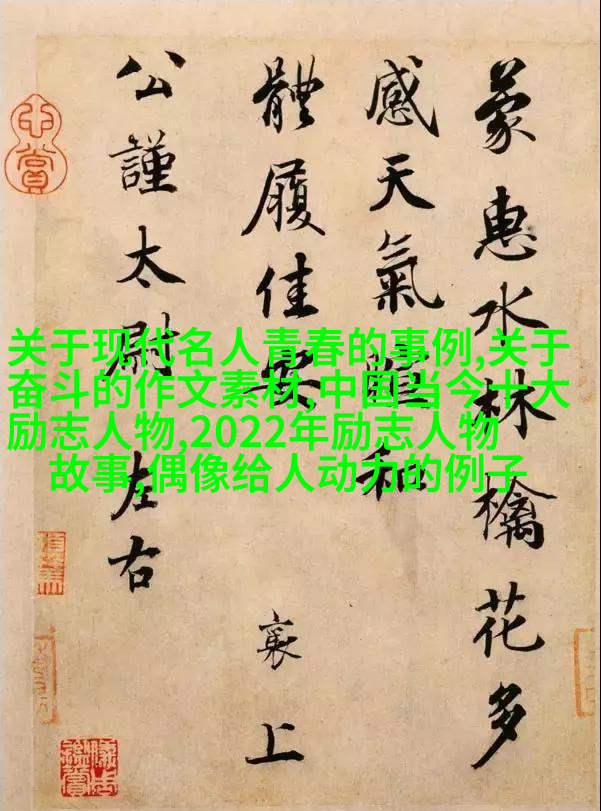 关于现代名人青春的事例,关于
奋斗的作文素材,中国当今十大
励志人物,2022年励志人物
故事,偶像给人动力的例子
蒙惠水林檎花多
感天氣暄和
體履佳安
襄上
公謹太尉左右